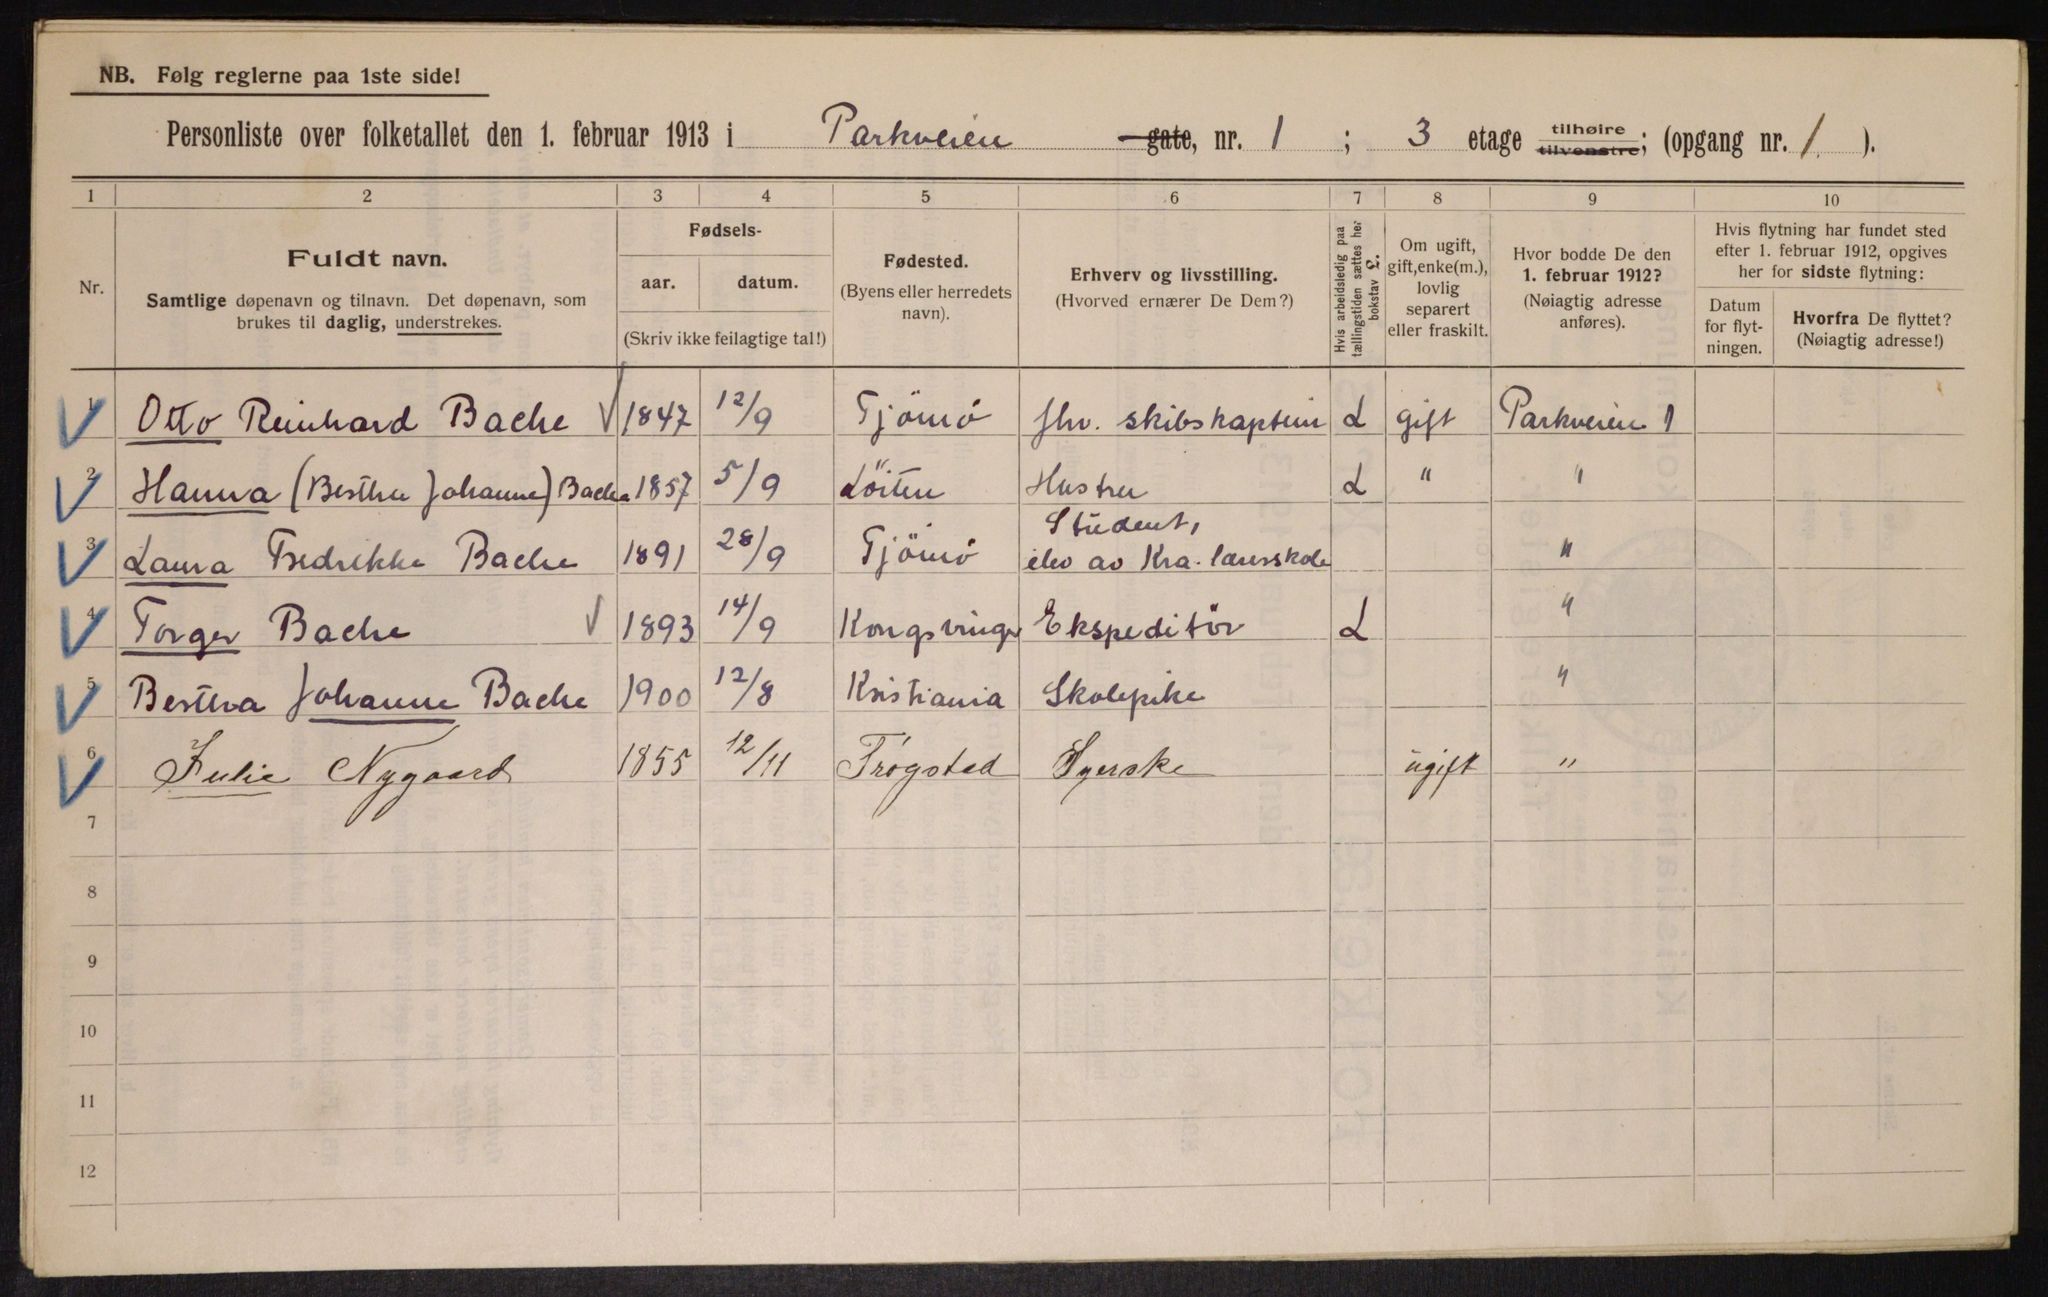 NB. Følg reglerne paa 1ste side!
Personliste over folketallet den 1. februar 1913 i Parkveien gate, nr. 1 ; 3 etage tilhøire tilvenstre; (opgang nr. 1 ).
1 2 3 4 5 6 7 8 9 10
Nr.
Fuldt navn.
Samtlige døpenavn og tilnavn. Det døpenavn, som
brukes til daglig, understrekes.
Fødsels-
aar. datum.
(Skriv ikke feilagtige tal!)
Fødested.
(Byens eller herredets
navn).
Erhverv og livsstilling.
(Hvorved ernærer De Dem?)
Hvis arbeidsledig paa
tællingstiden sættes her
bokstav L.
Om ugift,
gift, enke(m.),
lovlig
separert
eller fraskilt.
Hvor bodde De den
1. februar 1912?
(Nøiagtig adresse
anføres).
Hvis flytning har fundet sted
efter 1. februar 1912, opgives
her for sidste flytning:
Datum
for flyt-
ningen.
Hvorfra De flyttet?
(Nøiagtig adresse!)
1 Otto Reinhard Bache 1847 12/9 Tjömö fhv. skibskaptein L gift Parkveien 1
2 Hanna (Berthe Johanne) Bache 1857 5/9 Löiten Hustru L " "
Student,
3 Laura Fredrikke Bache 1891 28/9 Tjömö elev av Kra. lærerskole "
4 Torger Bache 1893 14/9 Kongsvinger Ekspeditör L "
5 Bertha Johanne Bache 1900 12/8 Kristiania Skolepike "
6 Julie Nygaard 1855 12/11 Trøgstad Syerske ugift "
7
8
9
10
11
12